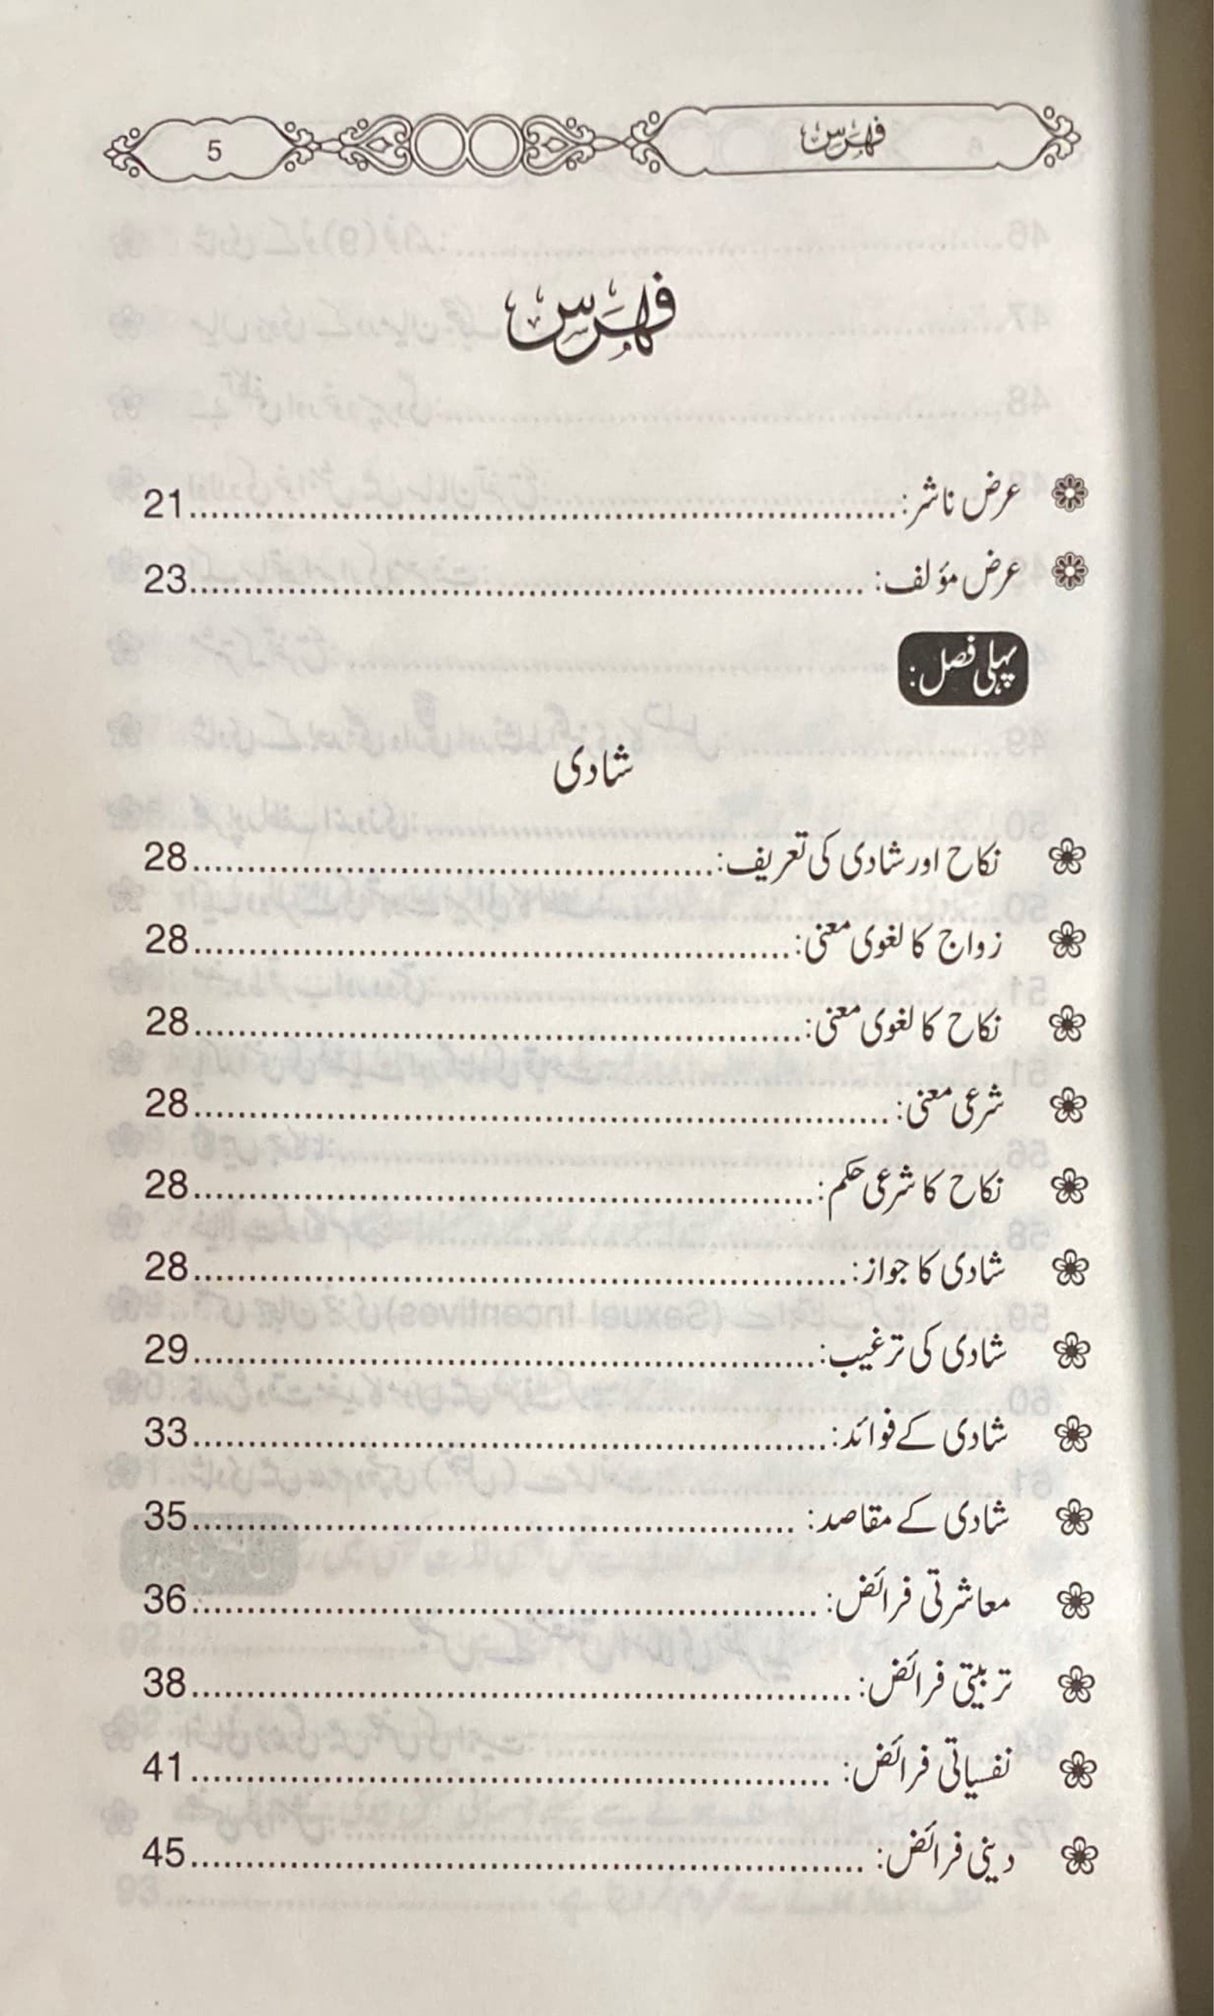 فہرس 5
فہرس
عرض ناشر: 21
عرض مؤلف: 23
پہلی فصل:
شادی
نکاح اور شادی کی تعریف: 28
زواج کا لغوی معنی: 28
نکاح کا لغوی معنی: 28
شرعی معنی: 28
نکاح کا شرعی حکم: 28
شادی کا جواز: 28
شادی کی ترغیب: 29
شادی کے فوائد: 33
شادی کے مقاصد: 35
معاشرتی فرائض: 36
تربیتی فرائض: 38
نفسیاتی فرائض: 41
دینی فرائض: 45